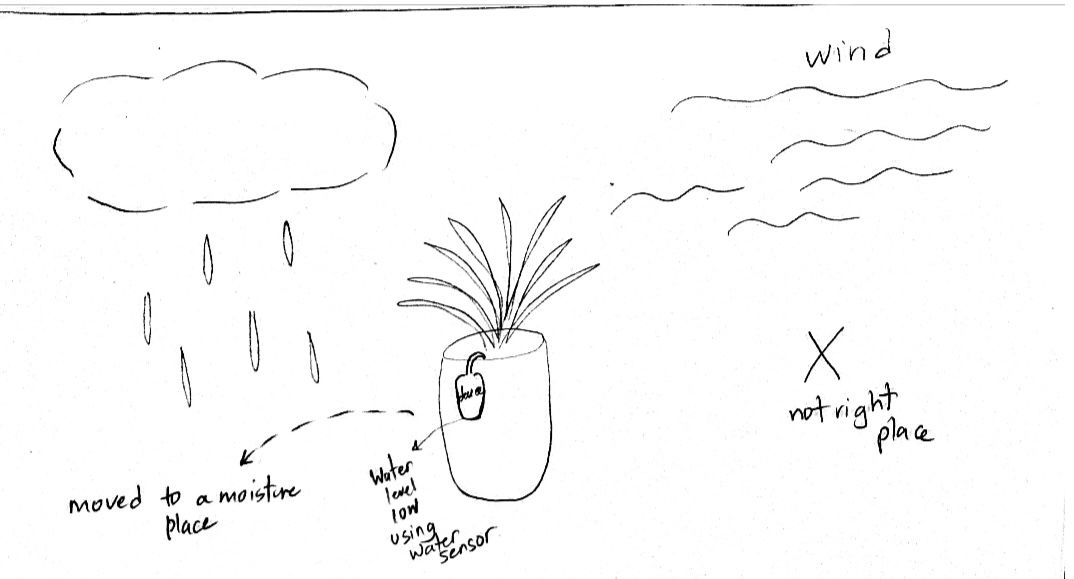 wind
X
not right
place
moved to a moisture
place
Water
level
low
using
water
sensor